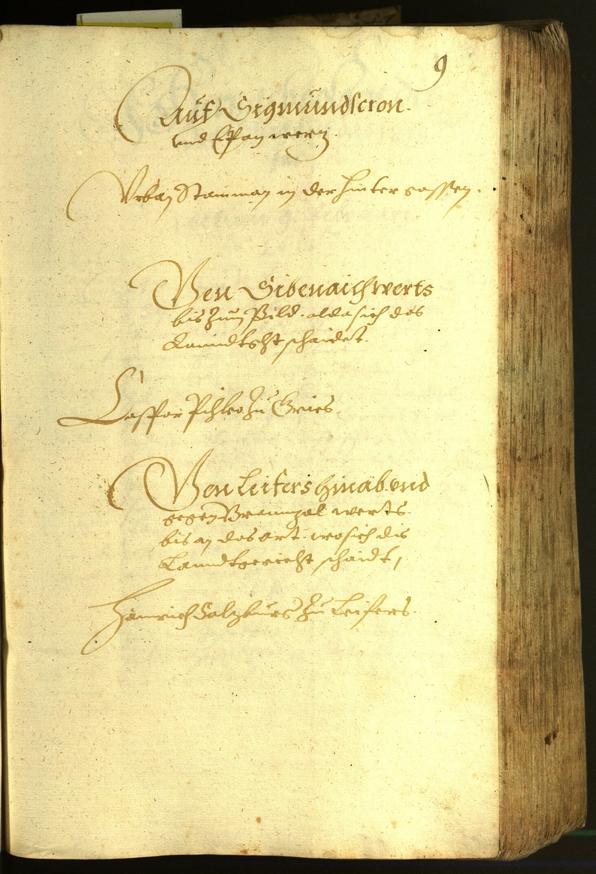 9
Auf Sigmundscron
und Epan werz
Urban Stamman in der hinter gassen.
Von Sibenaich werts
bis zum Pild. alda sich das
Lanndtght schaidet.
Casspar Pichler zu Gries.
Von Leifers hinab und
gegen Brannzol werts
bis an das ort. wo sich dis
Lanndtgericht schaidt,
Hainrich Salzburg zu Leifers.